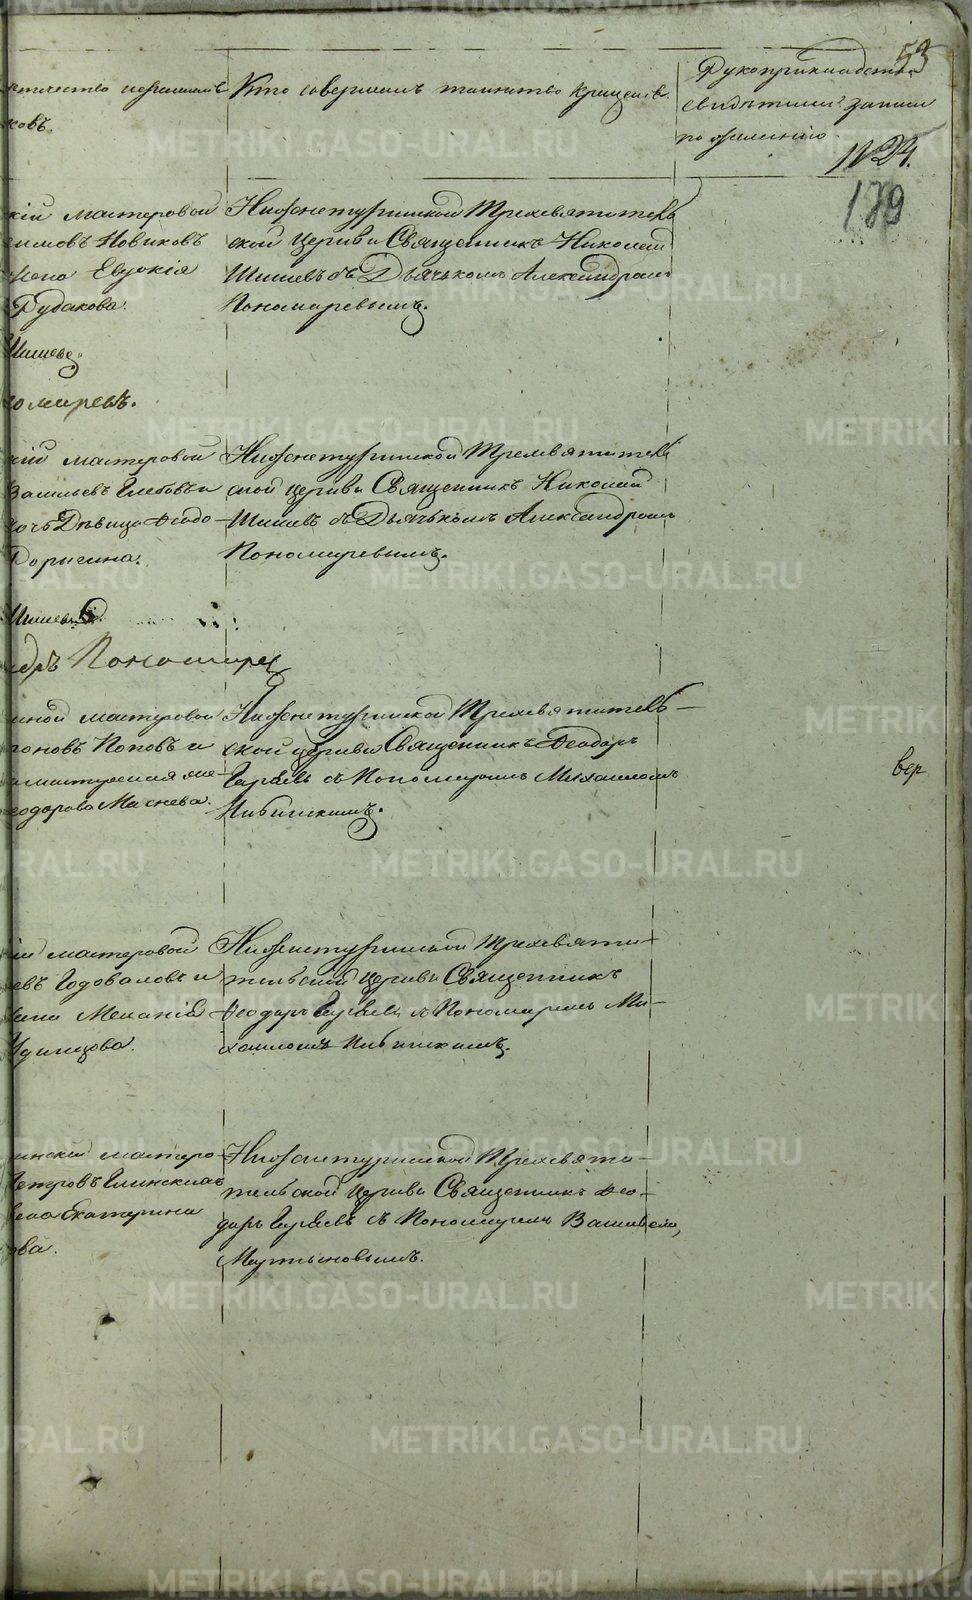 53
Кто совершалъ таинство крещенія.
Рукоприкладство
свидѣтелей записи
по желанію
179
кій мастеровой
Новиковъ
жена Евдокія
Рудакова.
Нижнетуринской Трехсвятитель
ской церкви Священникъ Николай
Шишевъ съ Дьячькомъ Александромъ
Пономаревымъ.
Шишевъ
омаревъ.
кій мастеровой
Васильевъ Глебовъ и
дочь Дѣвица Ѳеодо
Нижнетуринской Трехсвятитель
ской церкви Священникъ Николай
Шишевъ съ Дьячькомъ Александромъ
Пономаревымъ.
Шишевъ.
ндръ Пономарев
мастеровой
Поповъ и
еодорова Маснева.
Нижнетуринской Трехсвятитель-
ской церкви Священникъ Ѳеодоръ
съ Пономаремъ Михаиломъ
вер
кій мастеровой
евъ Годоваловъ и
жена Меланія
Нижнетуринской Трехсвяти-
тельской церкви Священникъ
Ѳеодоръ съ Пономаремъ Ми-
хаиломъ
инскій мастеро
Петровъ Глинскихъ
жена Екатерина
ова.
Нижнетуринской Трехсвяти-
тельской церкви Священникъ Ѳео-
доръ съ Пономаремъ
Мартыновымъ.
METRIKI.GASO-URAL.RU